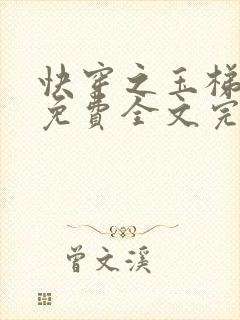 快穿之玉梯
免费全文完
曾文溪